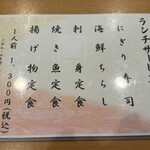 ランチサー
にぎり寿司
海鮮ちらし
刺身定食
焼き魚定食
揚げ物定食
1人前 1,300円(税込)